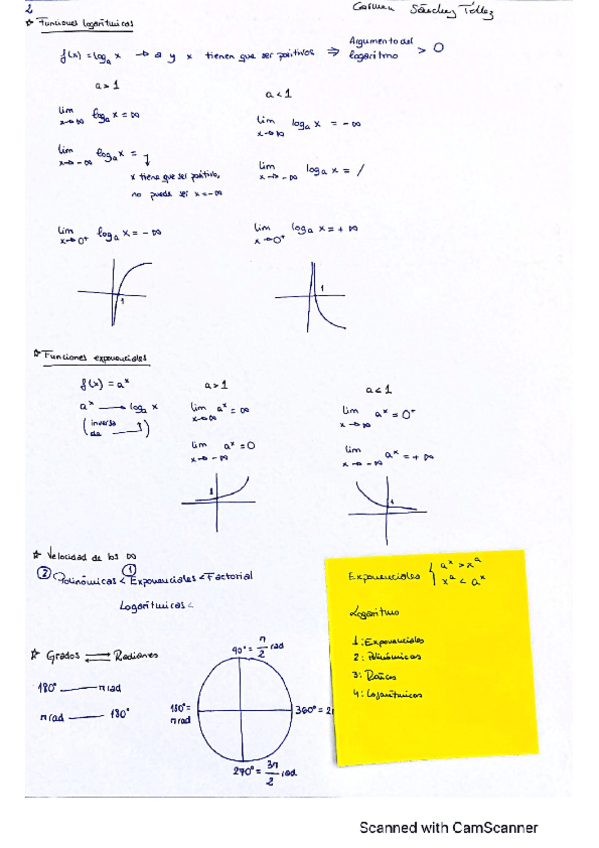 2
Carmen Sánchez Téllez
☆ Funciones logarítmicas
f(x) = logₐ x → a y x tienen que ser positivos ⇒ Argumento del logaritmo > 0
a > 1
a < 1
lim x→∞ logₐ x = ∞
lim x→∞ logₐ x = -∞
lim x→-∞ logₐ x =
x tiene que ser positivo,
no puede ser x = -∞
lim x→-∞ logₐ x = /
lim x→0⁺ logₐ x = -∞
lim x→0⁺ logₐ x = +∞
1
1
☆ Funciones exponenciales
f(x) = aˣ
a > 1
a < 1
aˣ → logₐ x
(inversa de)
lim x→∞ aˣ = ∞
lim x→∞ aˣ = 0⁺
lim x→-∞ aˣ = 0
lim x→-∞ aˣ = +∞
1
1
☆ Velocidad de los ∞
② ①
Polinómicas < Exponenciales < Factorial
Logarítmicas <
Exponenciales { aˣ > xᵃ
xᵃ < aˣ
Logaritmo
1: Exponenciales
2: Polinómicas
3: Raíces
4: Logarítmicos
☆ Grados ⇄ Radianes
180° — π rad
π rad — 180°
90° = π/2 rad
180° = π rad
360° = 2
270° = 3π/2 rad
Scanned with CamScanner